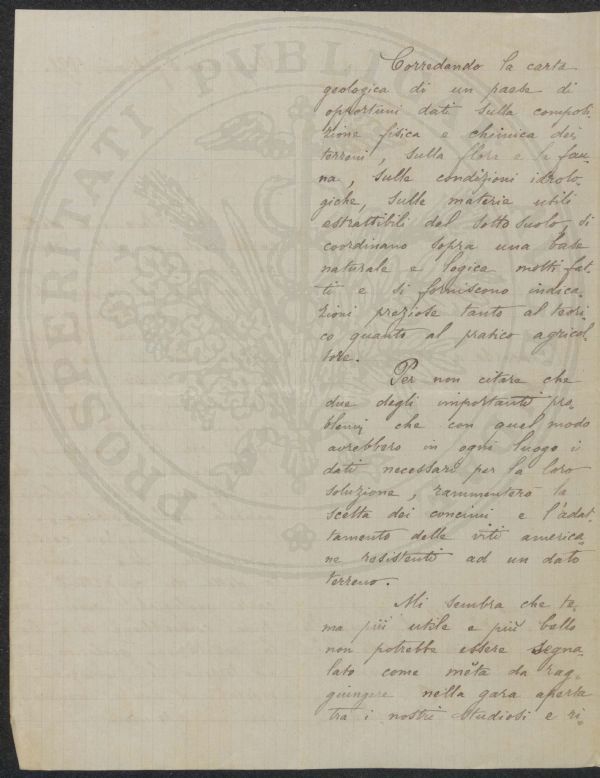 Corredando la carta
geologica di un paese di
opportuni dati sulla composi-
zione fisica e chimica dei
terreni, sulla flora e la fau-
na, sulle condizioni idrolo-
giche, sulle materie utili
estrattibili dal sottosuolo, si
coordinano sopra una base
naturale e logica molti fat-
ti e si forniscono indica-
zioni preziose tanto al teori-
co quanto al pratico agricol-
tore.
Per non citare che
due degli importanti pro-
blemi che con quel modo
avrebbero in ogni luogo i
dati necessari per la loro
soluzione, rammenterò la
scelta dei concimi e l'adat-
tamento delle viti america-
ne resistenti ad un dato
terreno.
Mi sembra che te-
ma più utile e più bello
non potrebbe essere segna-
lato come mèta da rag-
giungere nella gara aperta
tra i nostri studiosi e ri-
PROSPERITATI PUBLICAE